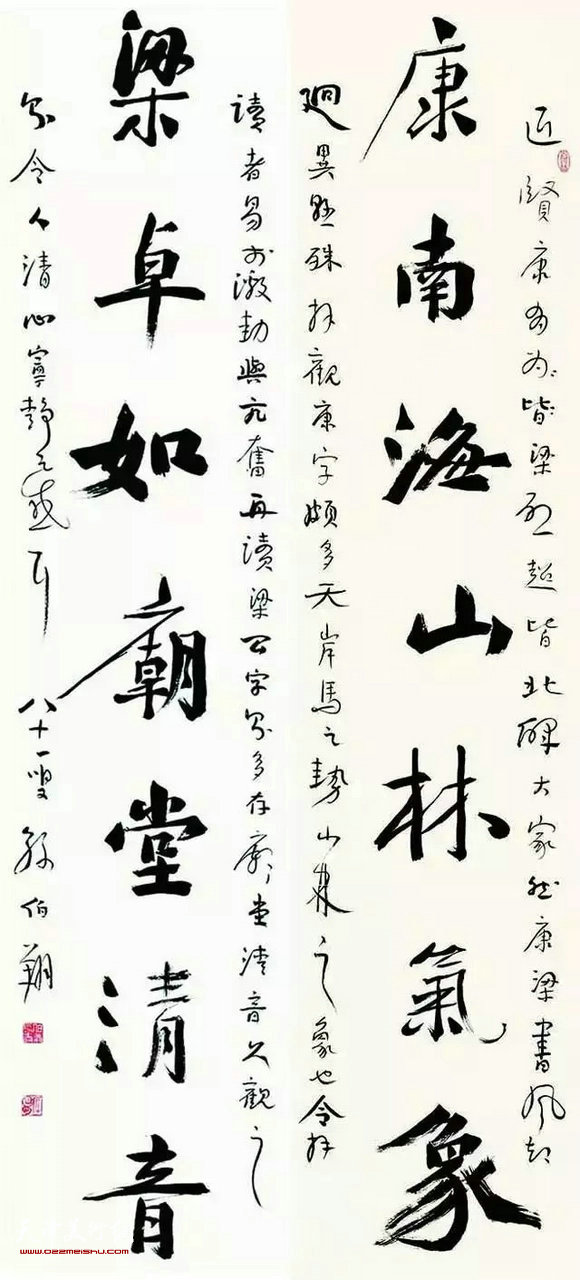 近賢康有為皆梁啟超皆北碑大家然康梁書風却
康南海山林氣象
迥異懸殊拜觀康字頗多天岸馬之勢山東之象也令拜
讀者易於激動與亢奮再讀梁公字多存廟堂清音久觀之
梁卓如廟堂清音
令人清心寧靜之感耳 八十一叟孫伯翔
www.022meishu.com